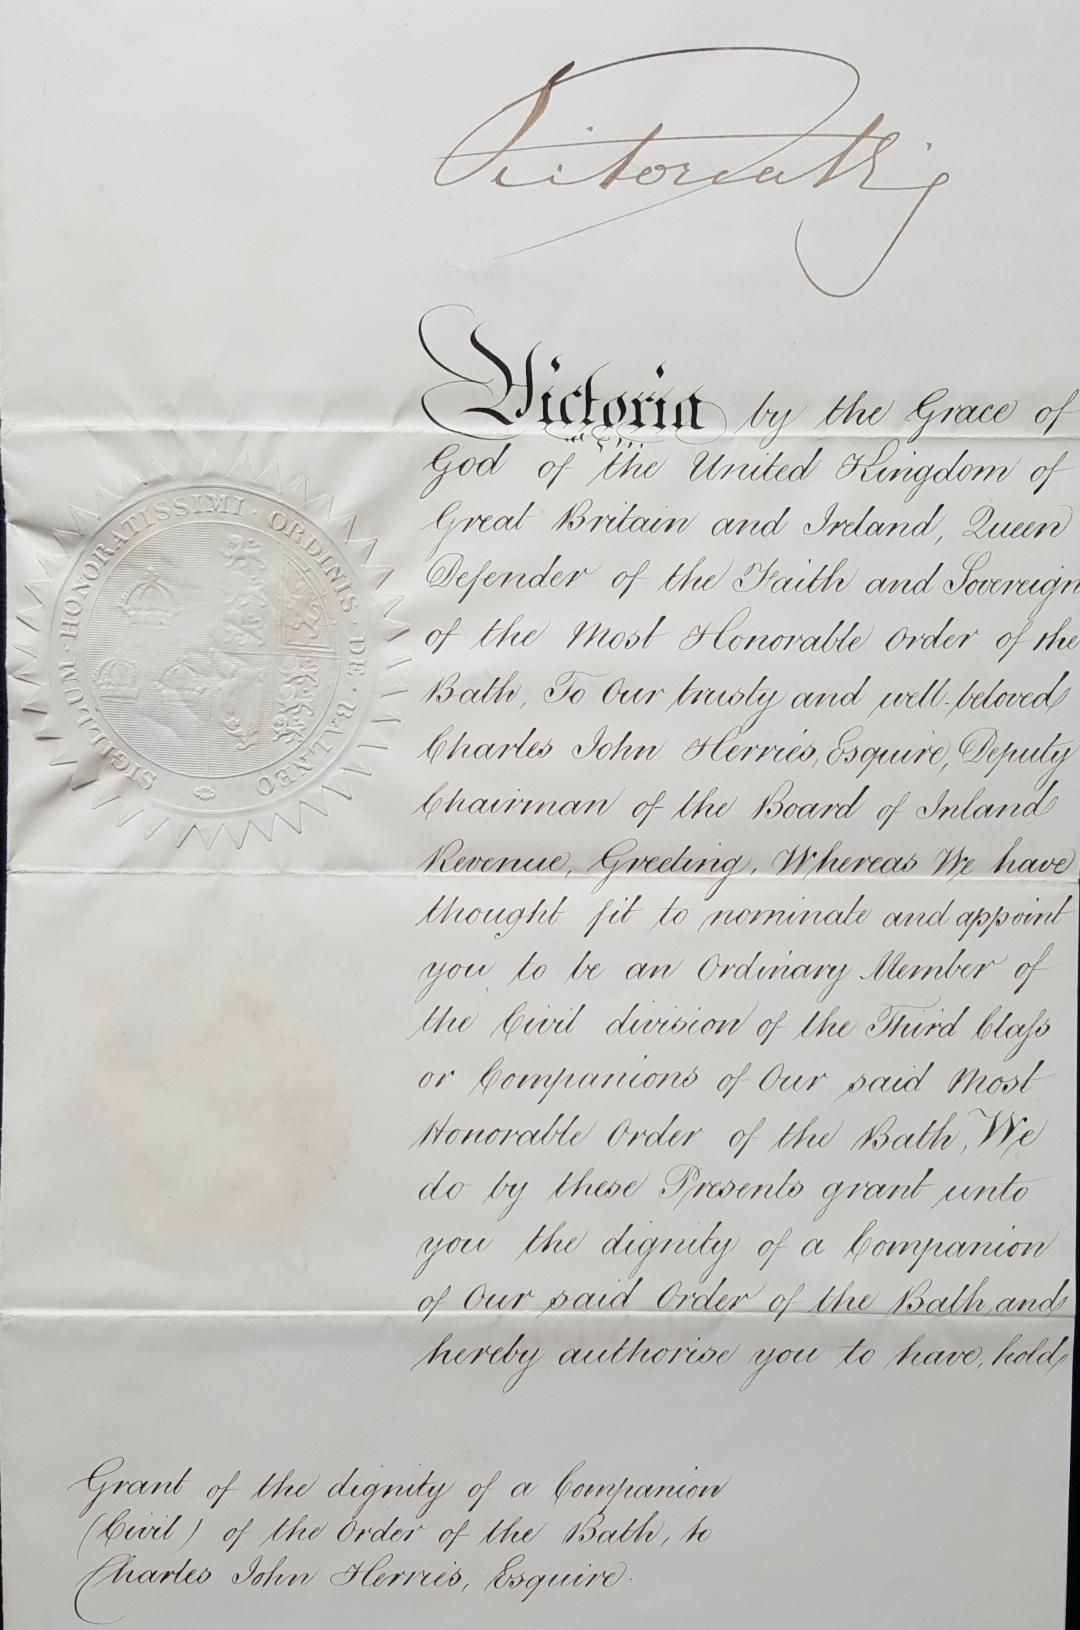 Victoria R g
Victoria by the Grace of
God of the United Kingdom of
Great Britain and Ireland, Queen
Defender of the Faith and Sovereign
of the Most Honorable Order of the
Bath, To Our trusty and well-beloved
Charles John Herries, Esquire, Deputy
Chairman of the Board of Inland
Revenue, Greeting, Whereas We have
thought fit to nominate and appoint
you to be an Ordinary Member of
the Civil division of the Third Claſs
or Companions of Our said Most
Honorable Order of the Bath, We
do by these Presents grant unto
you the dignity of a Companion
of Our said Order of the Bath, and
hereby authorise you to have, hold,
SIGILLUM · HONORATISSIMI · ORDINIS · DE · BALNEO
Grant of the dignity of a Companion
(Civil) of the Order of the Bath, to
Charles John Herries, Esquire.